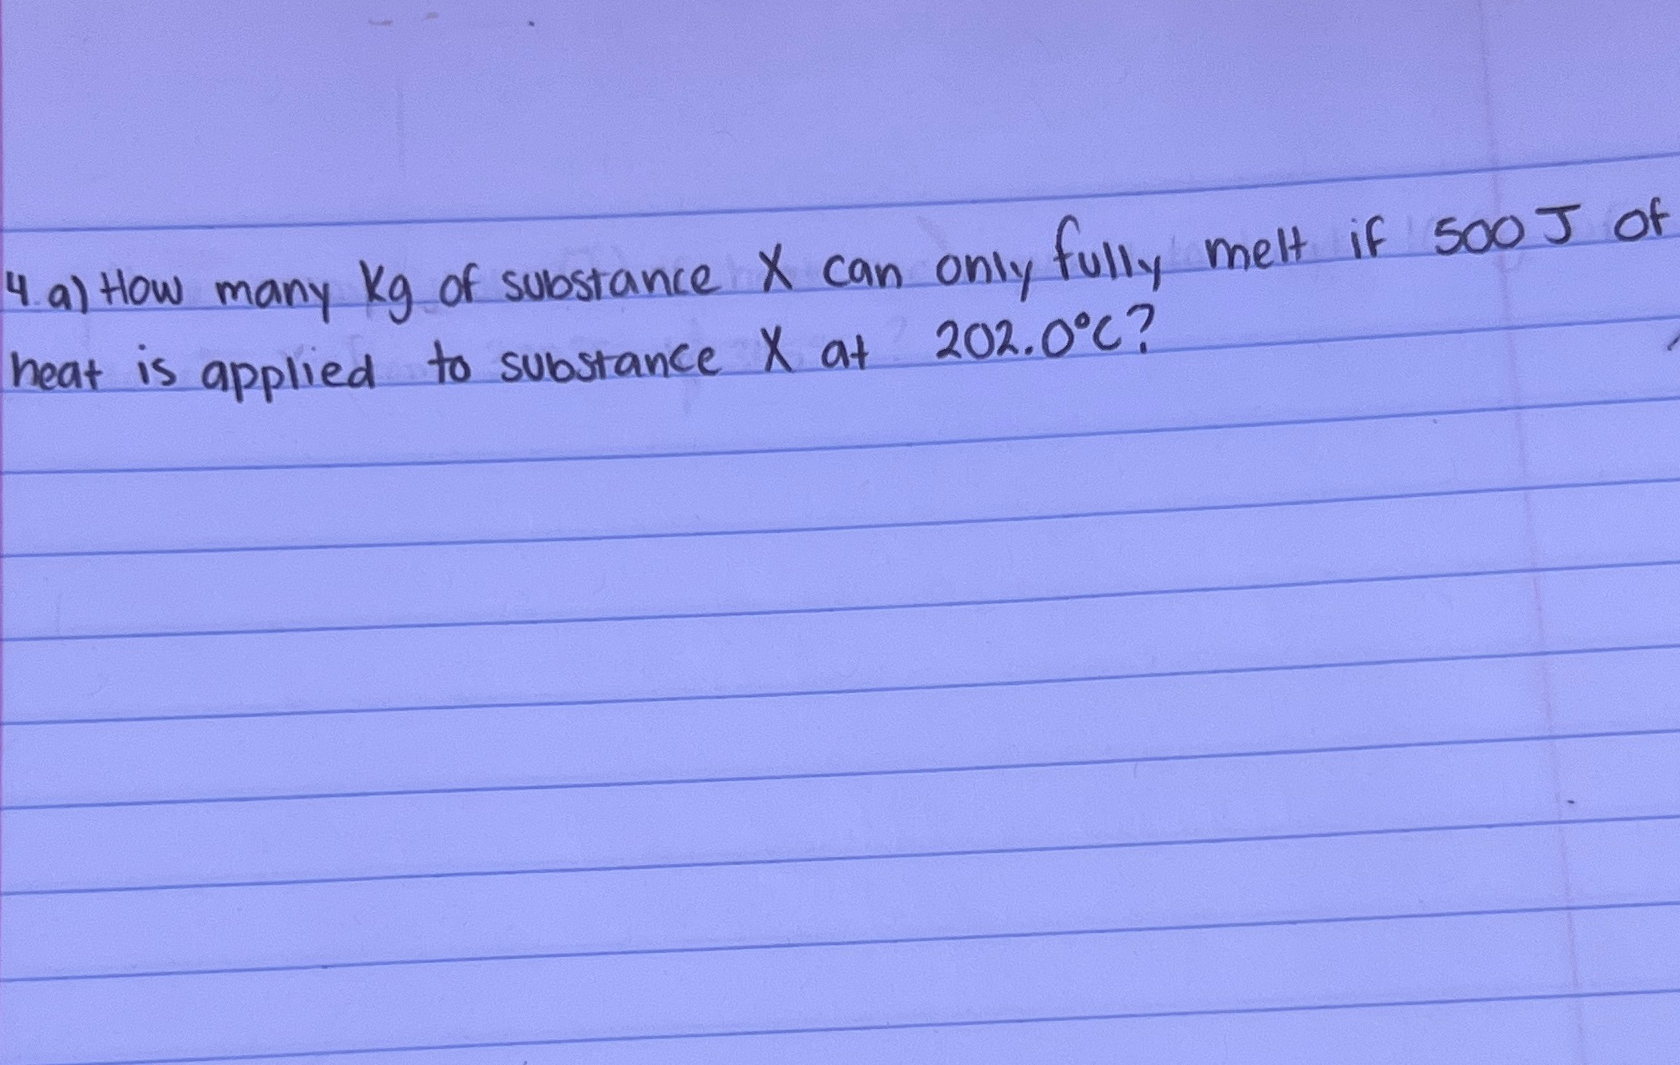 4.a) How many Kg of substance X can only fully melt if 500 J of
heat is applied to substance X at 202.0°C?